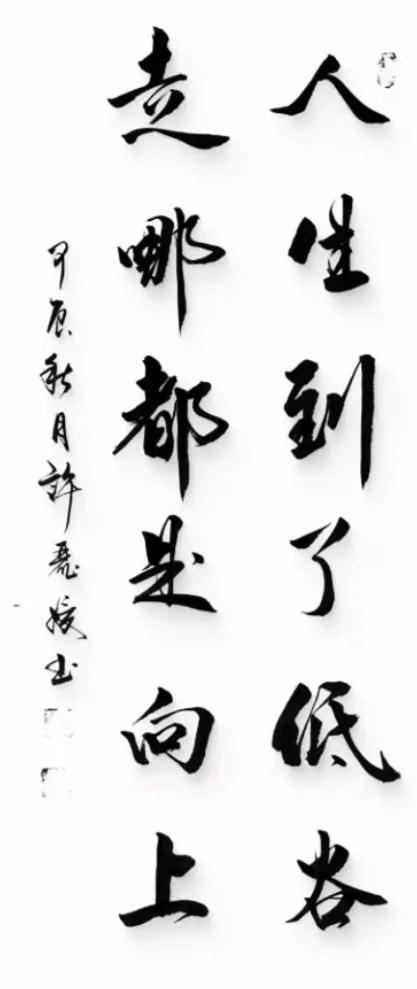 人生到了低谷
走哪都是向上
甲辰秋月許麗媛书